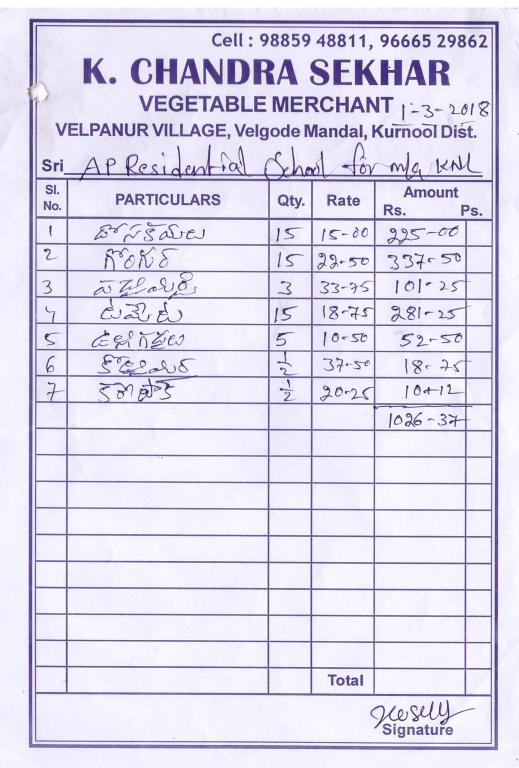 Cell : 98859 48811, 96665 29862
K. CHANDRA SEKHAR
VEGETABLE MERCHANT 1-3-2018
VELPANUR VILLAGE, Velgode Mandal, Kurnool Dist.
Sri AP Residential School for KNL
Sl. No. PARTICULARS Qty. Rate Amount Rs. Ps.
1 దోసకాయలు 15 15-00 225-00
2 గోంగూర 15 22-50 337-50
3 పచ్చిమిర్చి 3 33-75 101-25
4 టమేటో 15 18-75 281-25
5 ఉల్లిగడ్డలు 5 10-50 52-50
6 కొత్తిమీర 1/2 37-50 18-75
7 కరేపాక్ 1/2 20-25 10-12
1026-37
Total
Signature